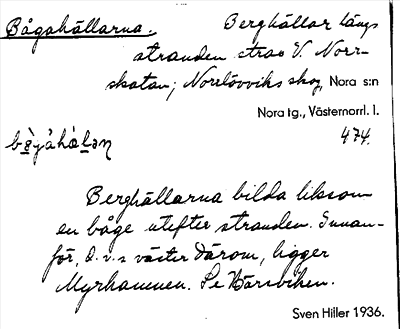 Bågahällarna. Berghällar längs
stranden strax V. Norr-
skatan; Norrlövviks skog, Nora s:n
Nora tg., Västernorrl. l.
474.
Berghällarna bilda liksom
en båge utefter stranden. Innan-
för, d.v.s väster därom, ligger
Myrhamnen. Se Bärsviken.
Sven Hiller 1936.